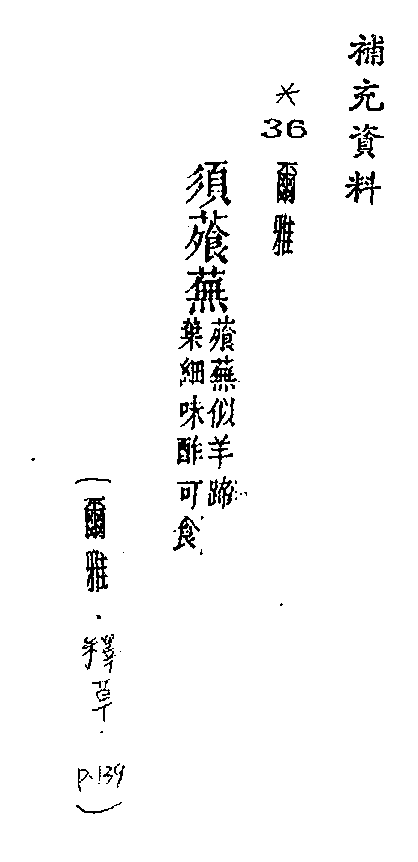 補充資料
*
36 爾雅
須薞蕪
薞蕪似羊蹄
葉細味酢可食
(爾雅·釋草·p.139)